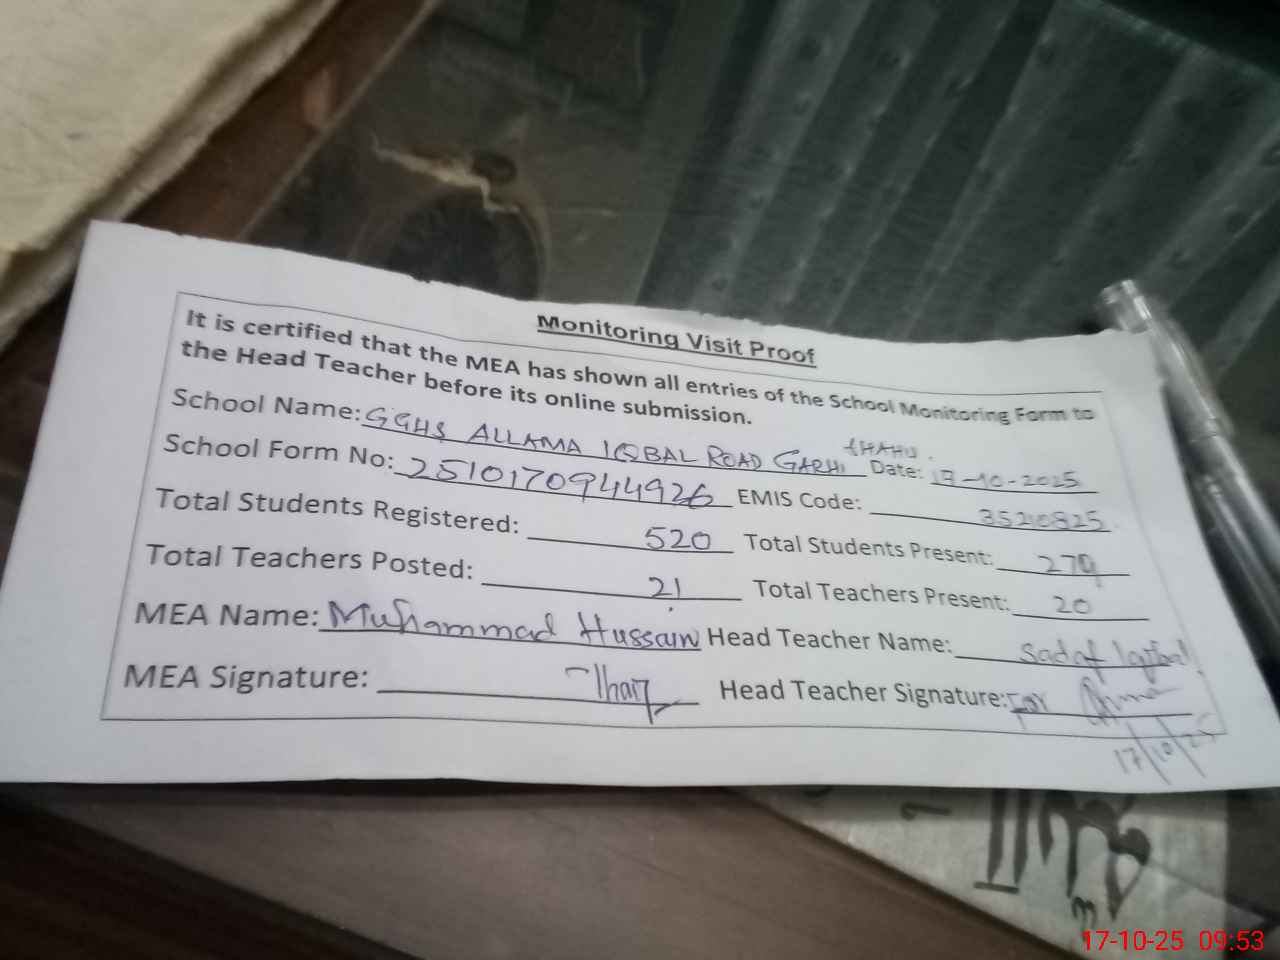 Monitoring Visit Proof
It is certified that the MEA has shown all entries of the School Monitoring Form to
the Head Teacher before its online submission.
School Name: GGHS ALLAMA IQBAL ROAD GARHI SHAHU. Date: 17-10-2025
School Form No: 2510170944926 EMIS Code: 35210825
Total Students Registered: 520 Total Students Present: 279
Total Teachers Posted: 21 Total Teachers Present: 20
MEA Name: Muhammad Hussain Head Teacher Name: Sadaf Iqbal
MEA Signature: Head Teacher Signature: For
17/10/25
17-10-25 09:53